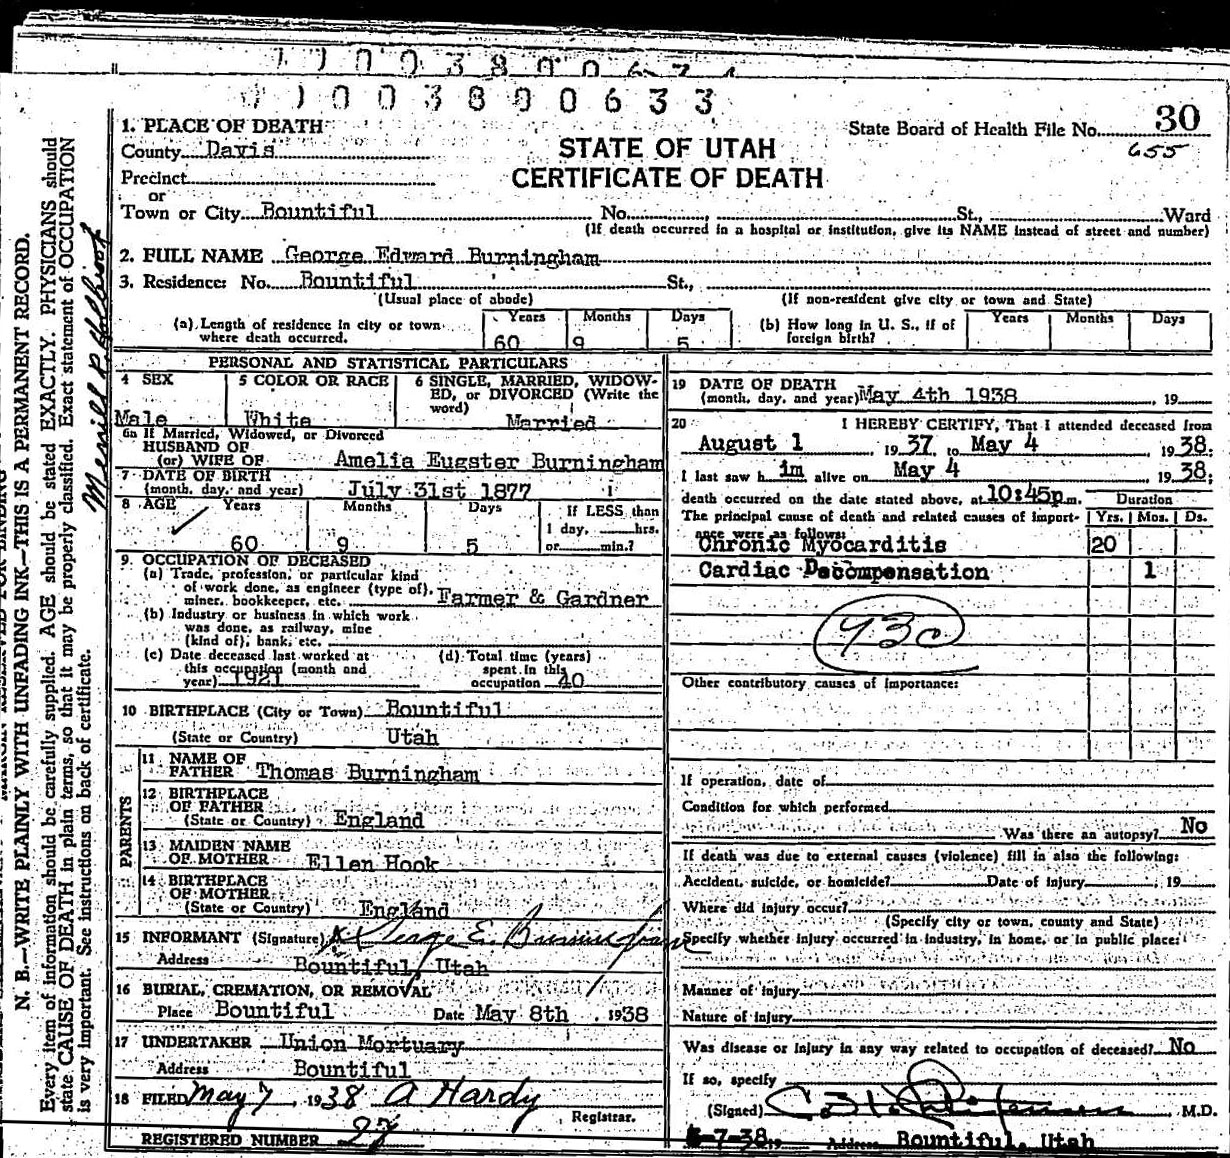 1 1 0 0 3 8 0 0 6 3 3
State Board of Health File No. 30
655
1. PLACE OF DEATH
STATE OF UTAH
CERTIFICATE OF DEATH
County Davis
Precinct
or
Town or City Bountiful No. St., Ward
(If death occurred in a hospital or institution, give its NAME instead of street and number)
2. FULL NAME George Edward Burningham
3. Residence: No. Bountiful St.,
(Usual place of abode) (If non-resident give city or town and State)
(a) Length of residence in city or town where death occurred. Years 60 Months 9 Days 5
(b) How long in U. S., if of foreign birth? Years Months Days
PERSONAL AND STATISTICAL PARTICULARS
4 SEX Male
5 COLOR OR RACE White
6 SINGLE, MARRIED, WIDOW-
ED, or DIVORCED (Write the
word) Married
6a If Married, Widowed, or Divorced
HUSBAND OF
(or) WIFE OF Amelia Eugster Burningham
7 DATE OF BIRTH
(month, day, and year) July 31st 1877
8 AGE Years 60 Months 9 Days 5
If LESS than
1 day, hrs.
or min.?
9. OCCUPATION OF DECEASED
(a) Trade, profession, or particular kind
of work done, as engineer (type of),
miner, bookkeeper, etc. Farmer & Gardner
(b) Industry or business in which work
was done, as railway, mine
(kind of), bank, etc.
(c) Date deceased last worked at
this occupation (month and
year) 1921
(d) Total time (years)
spent in this
occupation 40
10 BIRTHPLACE (City or Town) Bountiful
(State or Country) Utah
PARENTS
11 NAME OF
FATHER Thomas Burningham
12 BIRTHPLACE
OF FATHER
(State or Country) England
13 MAIDEN NAME
OF MOTHER Ellen Hook
14 BIRTHPLACE
OF MOTHER
(State or Country) England
15 INFORMANT (Signature) George E. Burningham
Address Bountiful, Utah
16 BURIAL, CREMATION, OR REMOVAL
Place Bountiful Date May 8th, 1938
17 UNDERTAKER Union Mortuary
Address Bountiful
18 FILED May 7, 1938 A Hardy
Registrar.
REGISTERED NUMBER 27
19 DATE OF DEATH
(month, day, and year) May 4th 1938, 19
20 I HEREBY CERTIFY, That I attended deceased from
August 1 1937, to May 4 1938;
I last saw h im alive on May 4 1938;
death occurred on the date stated above, at 10:45p m.
Duration
The principal cause of death and related causes of import-
ance were as follows: Yrs. Mos. Ds.
Chronic Myocarditis 20
Cardiac Decompensation 1
93c
Other contributory causes of importance:
If operation, date of
Condition for which performed
Was there an autopsy? No
If death was due to external causes (violence) fill in also the following:
Accident, suicide, or homicide? Date of injury , 19
Where did injury occur?
(Specify city or town, county and State)
Specify whether injury occurred in industry, in home, or in public place:
Manner of injury
Nature of injury
Was disease or injury in any way related to occupation of deceased? No
If so, specify
(Signed) M.D.
5-7-38 19 Address Bountiful, Utah
N. B.—WRITE PLAINLY WITH UNFADING INK—THIS IS A PERMANENT RECORD.
Every item of information should be carefully supplied. AGE should be stated EXACTLY. PHYSICIANS should
state CAUSE OF DEATH in plain terms, so that it may be properly classified. Exact statement of OCCUPATION
is very important. See instructions on back of certificate.
Merrill R Holbrook